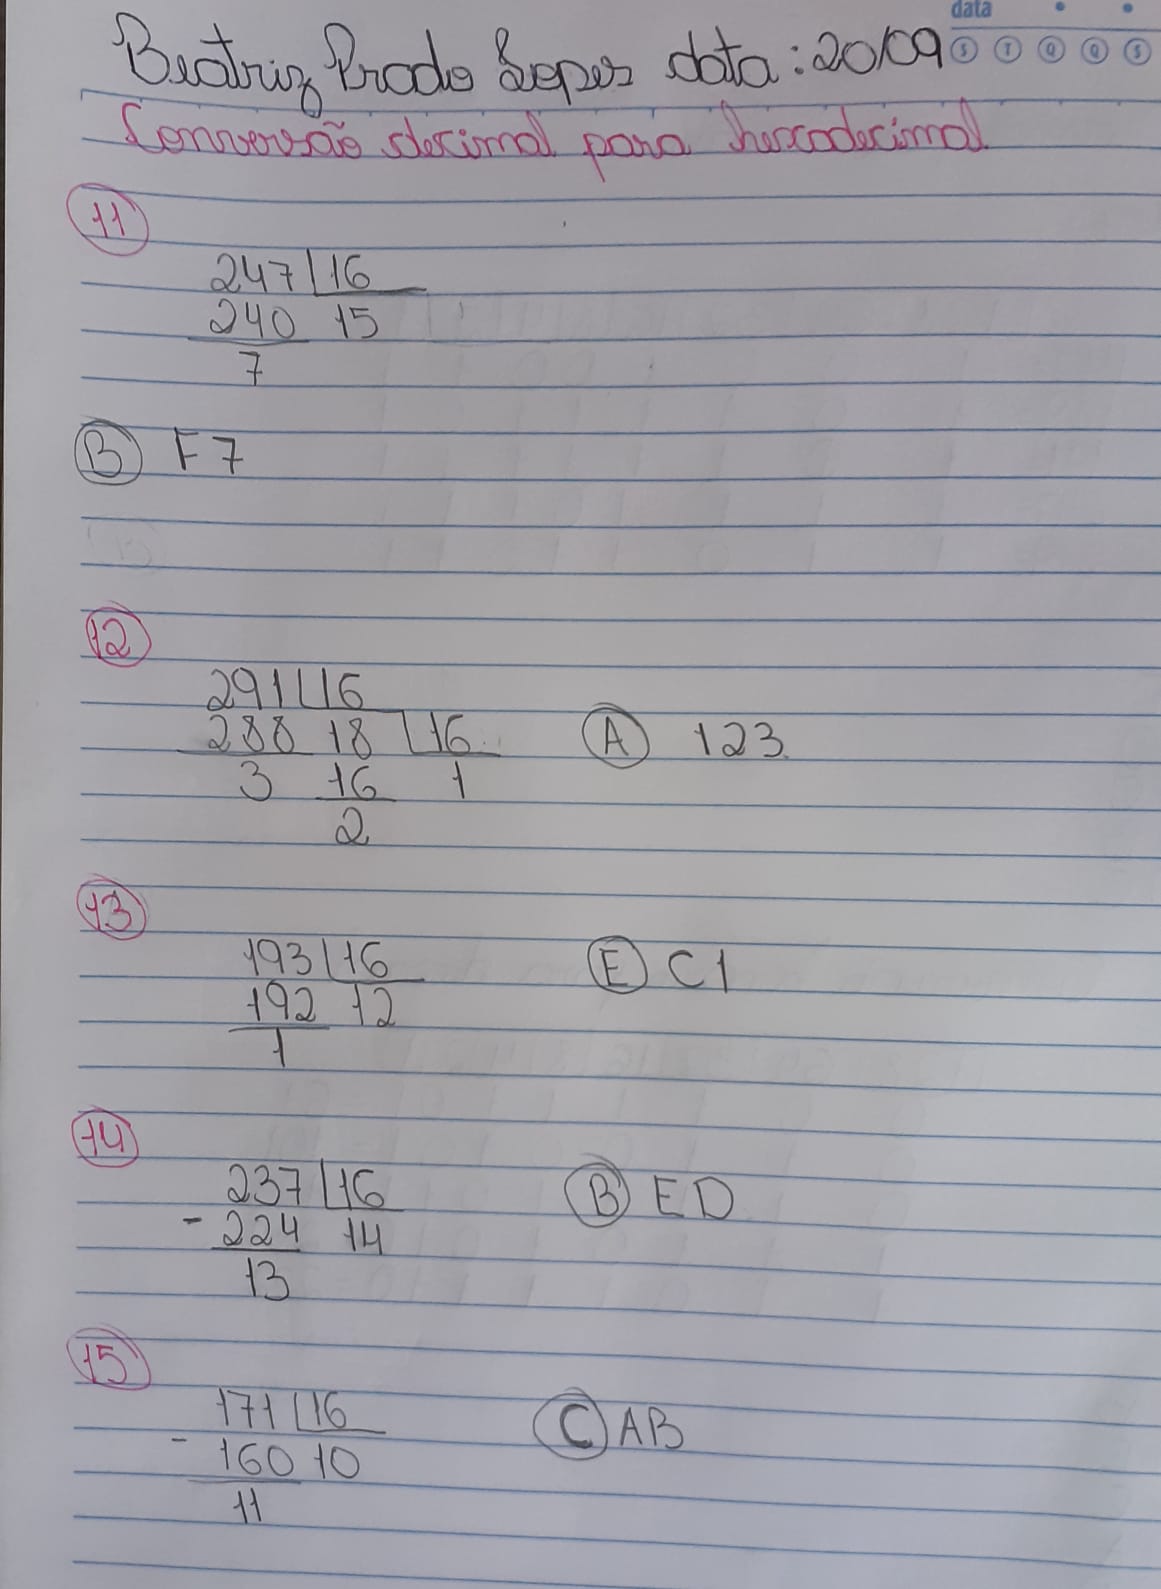 data
Beatriz Prado Lopes data: 20/09
S T Q Q S
Conversão decimal para hexadecimal
11
247 16
240 15
7
B F7
12
291 16
288 18 16 A 123
3 16 1
2
13
193 16 E C1
192 12
1
14
237 16 B ED
- 224 14
13
15
171 16 C AB
- 160 10
11